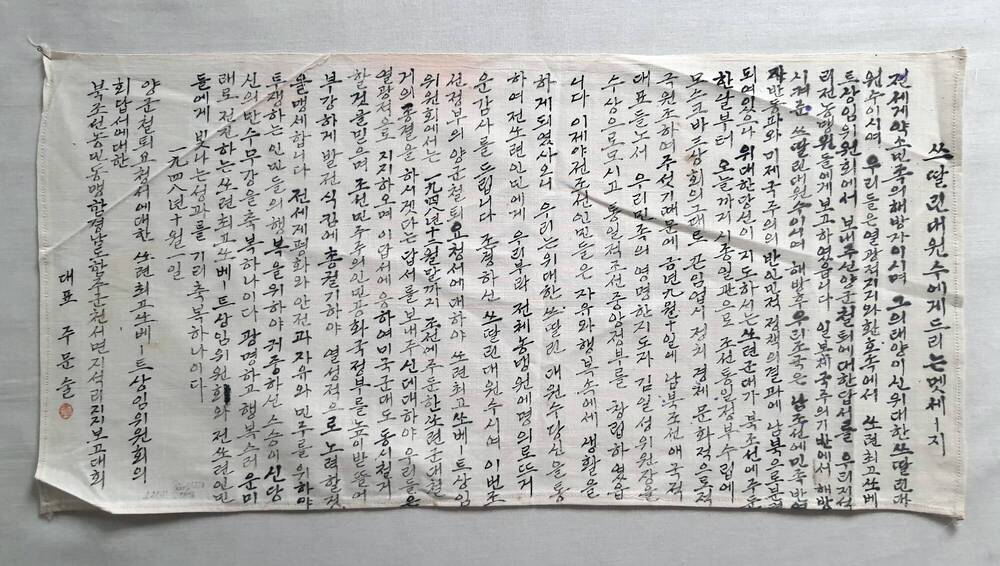 쓰딸린대원수에게드리는멧세ㅡ지
전세계약소민족의해방자이시며 그의태양이신위대한쓰딸린대
원수이시여 우리들은열광적지지와환호속에서 쏘련최고쏘베
트상임위원회에서 보내주신양군철퇴에대한답서를 우리지석
리전농맹원들에게보고하였읍니다 일본제국주의기반에서 해방
시켜준 쓰딸린대원수이시여 해방후우리조국은 남조선에민족반역
자반동파와미제국주의의반인민적 정책의결과에 남북으로분열
되여있으나 위대한당신이 지도하시는쏘련군대가 북조선에주둔
한날부터 오늘까지 시종일관으로 조선통일정부수립에
모스크바三상회의그대로 끈임업시정치 경제 문화적으로적
극원조하여주섯기때문에 금년九월十일에 남북조선애국적
대표들노서 우리민족의영명한지도자 김일성위원장을
수상으로모시고 통일적조선중앙정부를 창립하였읍
니다 이제야전조선인민들은 자유와행복속에세 생활을
하게되엿사오니 우리는위대한쓰딸린 대원수당신을통
하여전쏘련인민에게 우리부락 전체농맹원에명의로뜨거
운감사를드립니다 조경하신 쓰딸린대원수시여 이번조
선정부의양군철퇴요청서에대하야 쏘련최고쏘베ㅡ트상임
위원회에서는 一九四八年十二월말까지 조선에주둔한쏘련군대철
거의종결을 하시겟다는답서를보내주신데대하야 우리들은
열광적으로 지지하오며 이답서에 응하여미국군대도 동시철거
할것을믿으며 조선민주주의인민공화국정부를높이받들어
부강하게 발전식킴에 총궐기하야 열성적으로노력할것
을맹세합니다 전세계평화와안전과자유와 민주를 위하야
투쟁하는인민들의행복을위하야 귀중하신 스승이신당
신의만수무강을축복하나이다 광명하고 행복스러운미
래로전진하는쏘련최고쏘베ㅡ트상임위원회와 전쏘련인민
들에게 빛나는성과를 기리축복하나이다
一九四八年十월一일
양군철퇴요청서에대한 쏘련최고쏘베ㅡ트상임위원회의
회답서에대한
북조선농민동맹함경남도함주군천서면지석리리지보고대회
대표 주문술